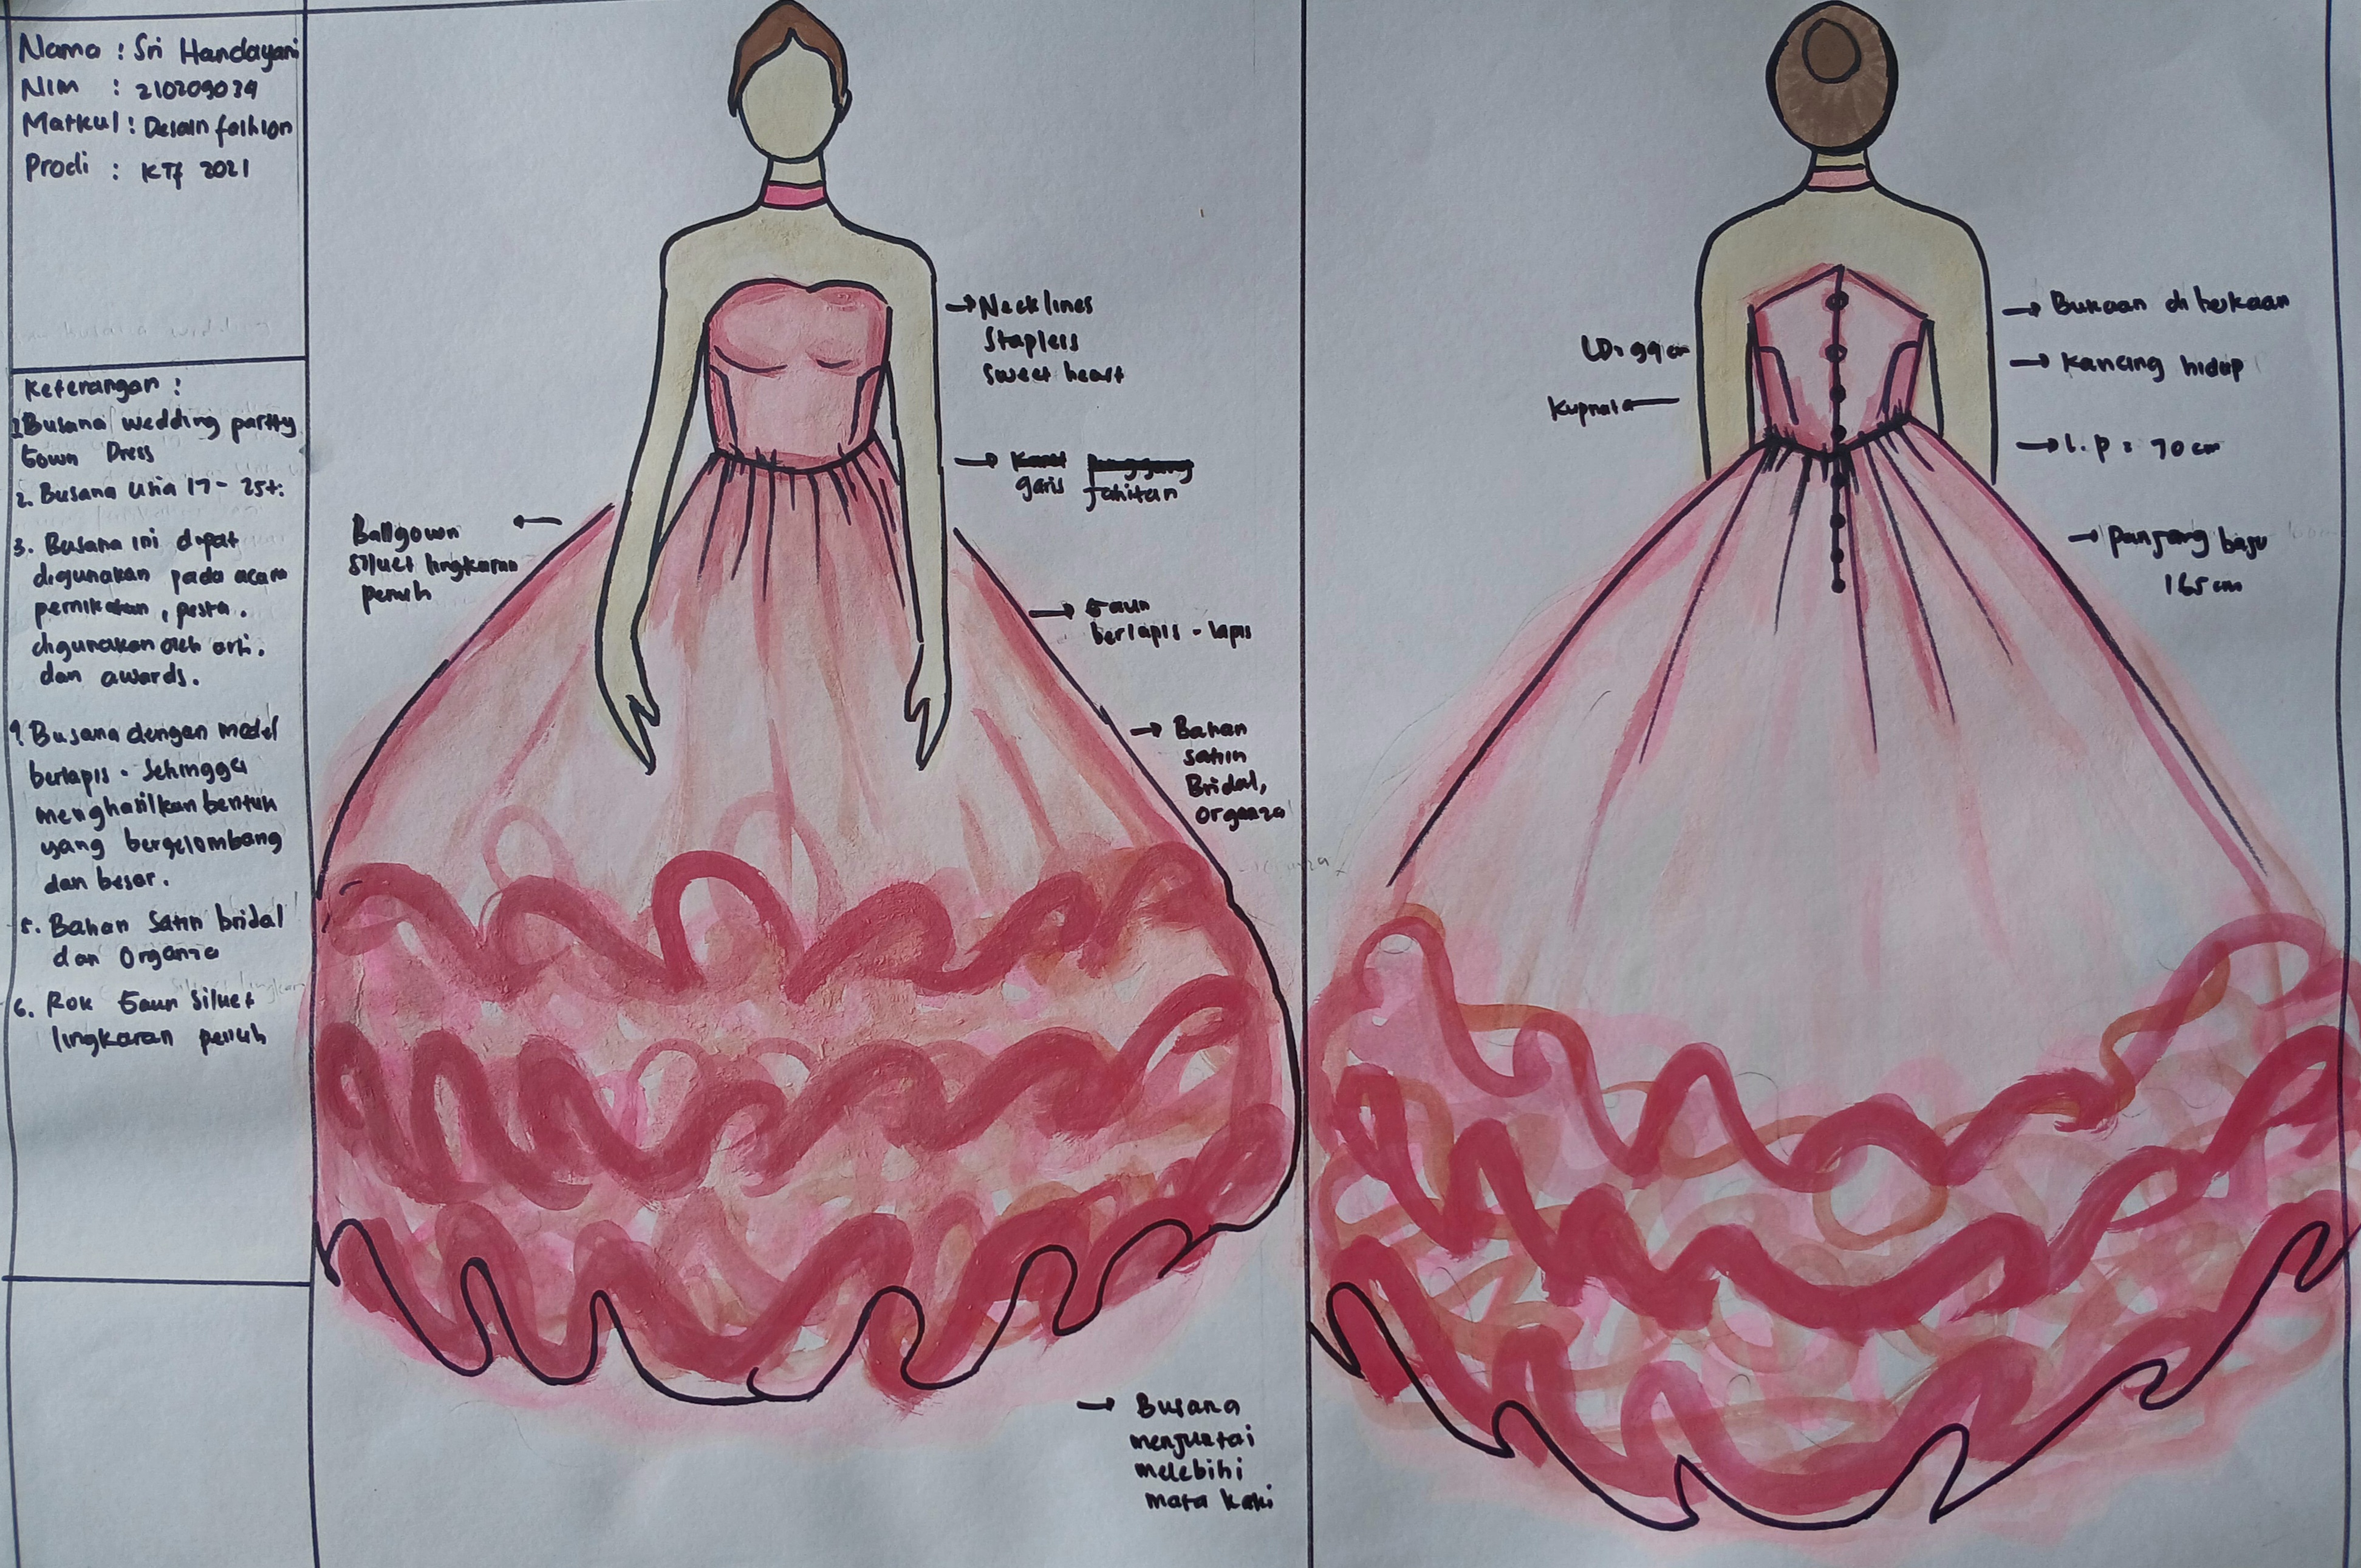 Nama : Sri Handayani
Nim : 210209039
Matkul : Desain fashion
Prodi : KTf 2021
Keterangan :
1. Busana wedding partty
Gown Dress
2. Busana Usia 17 - 25 t.
3. Busana ini dapat
digunakan pada acara
pernikahan, pesta.
digunakan oleh arti.
dan awards.
4. Busana dengan model
berlapis - Sehingga
menghasilkan bentuk
yang bergelombang
dan besar.
5. Bahan Satin bridal
dan Organza
6. Rok Gaun Siluet
lingkaran penuh
Neck lines
Stapless
sweet heart
garis Jahitan
Ballgown
siluet lingkaran
penuh
Gaun
berlapis - lapis
Bahan
satin
Bridal,
organza
Busana
menjuntai
melebihi
mata kaki
Kupnat
Bukaan di
kancing hidup
l.p = 70 cm
panjang baju
165 cm